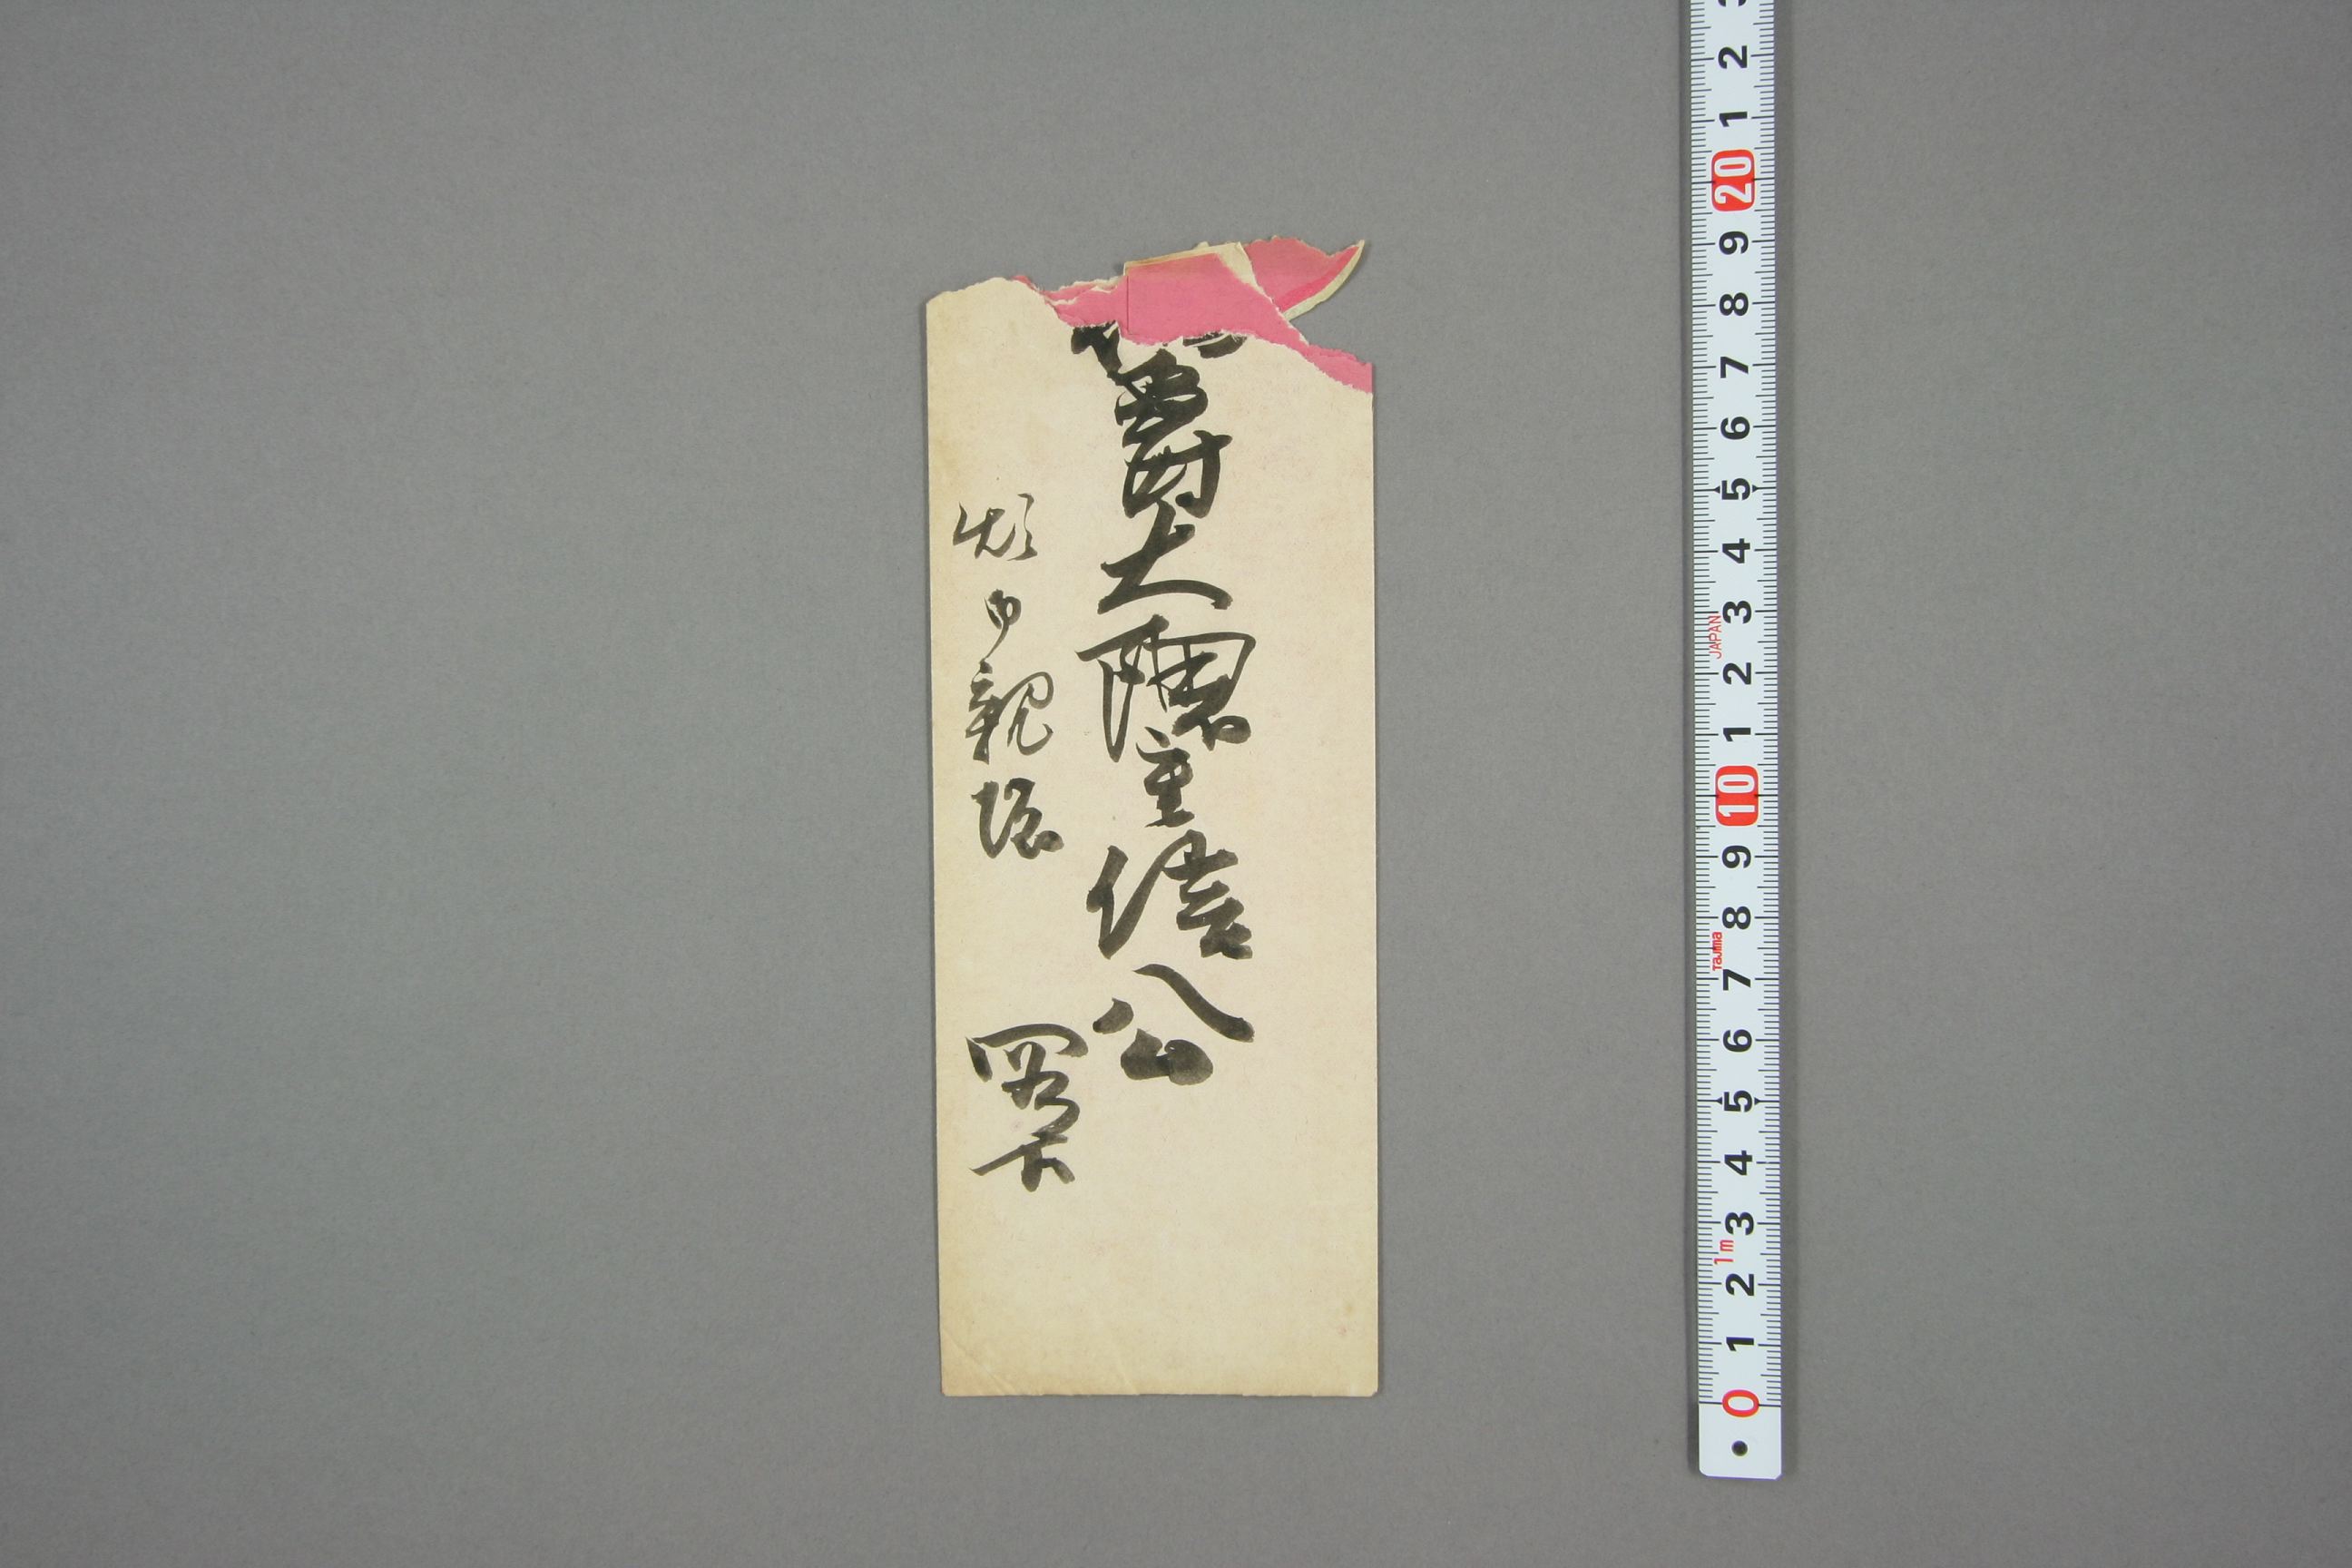 爵大隈重信公
煩御親展
閣下
3 2 1 20 9 8 7 6 5 4 3 2 1 10 9 8 7 6 5 4 3 2 1 0
JAPAN
Tajima
1m